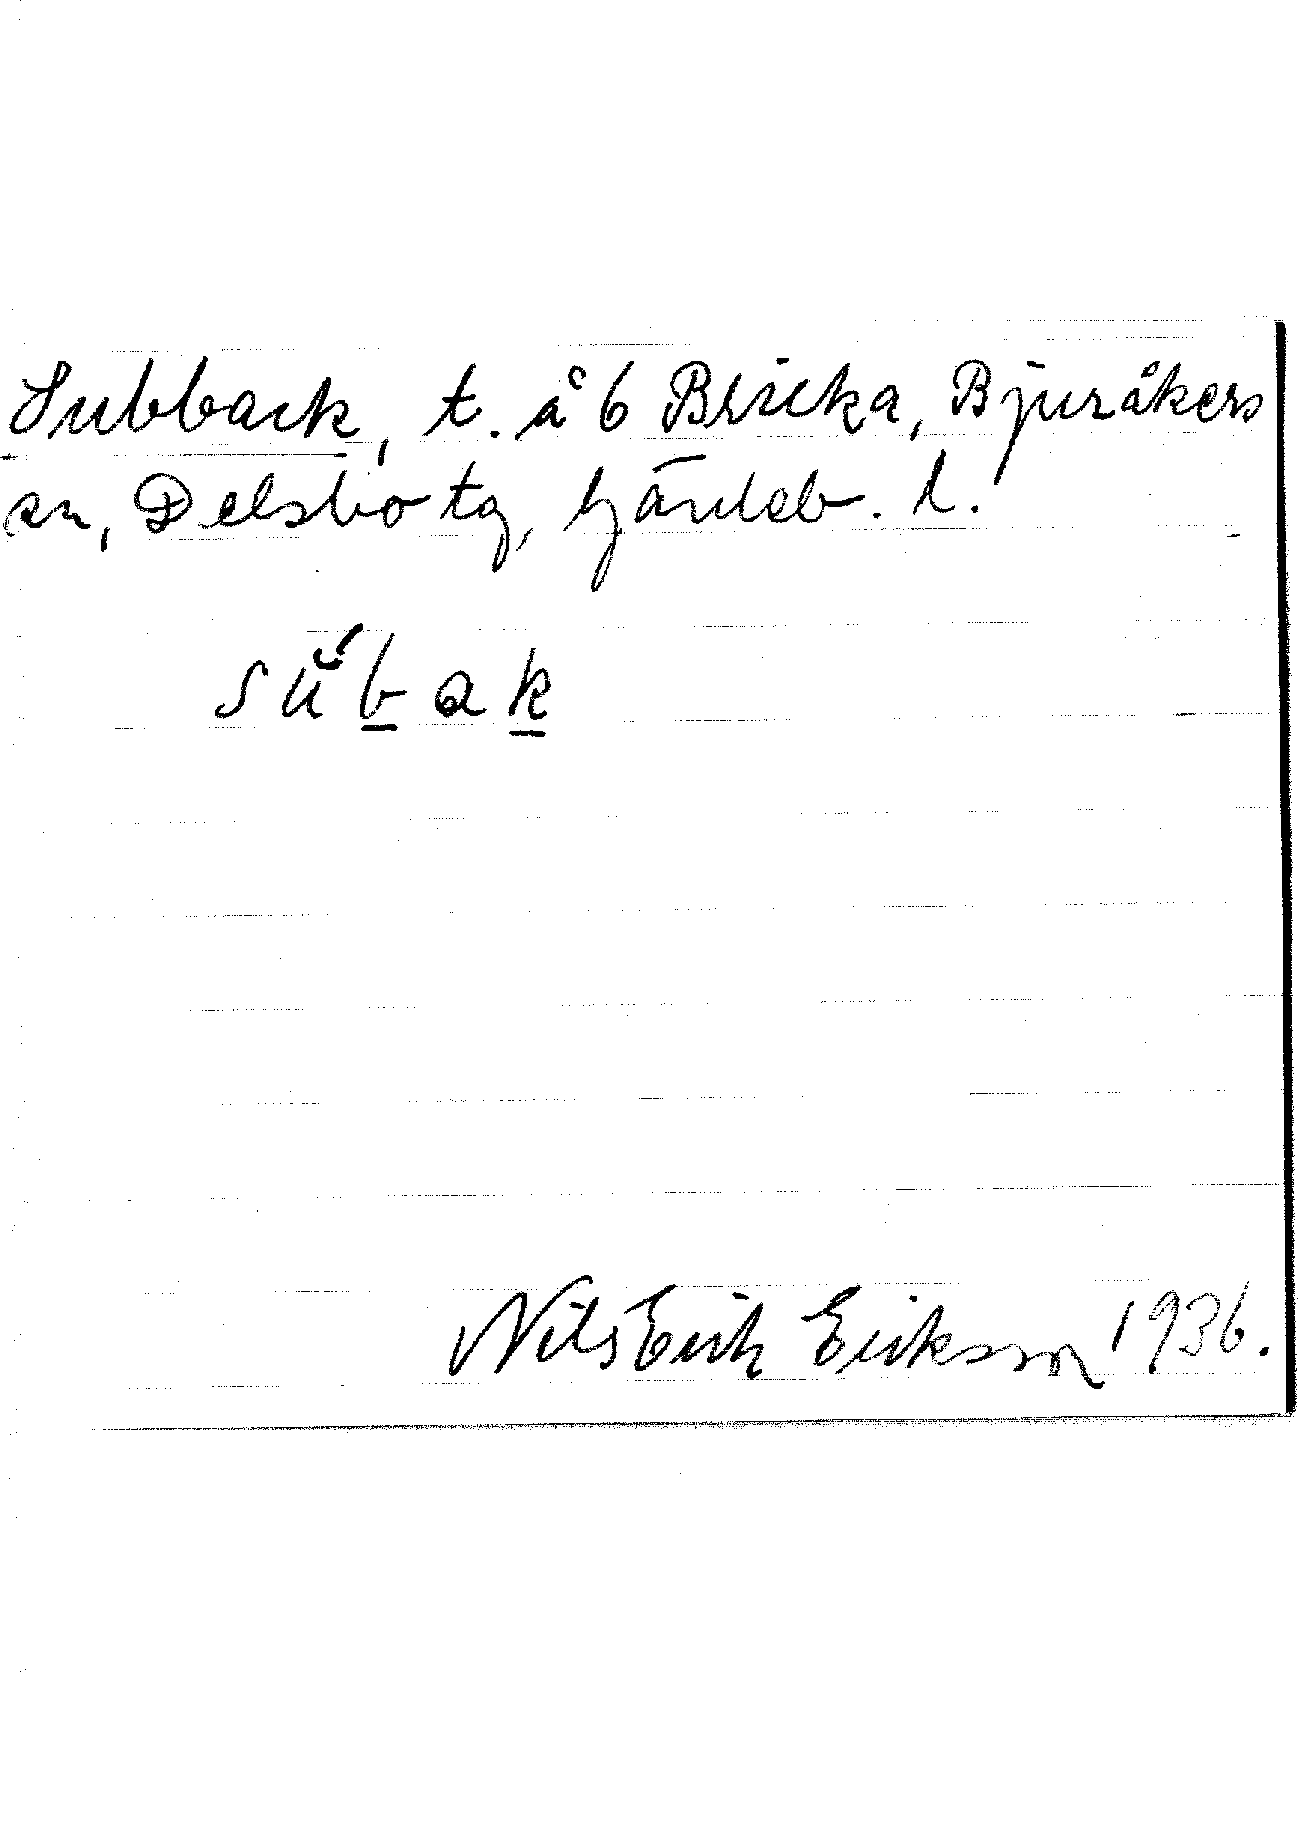 Subback, t. å 6 Bricka, Bjuråkers
sn, Delsbo tg, Gävleb. l.
sŭ́b̲ak̲
Nils Erik Erikson 1936.